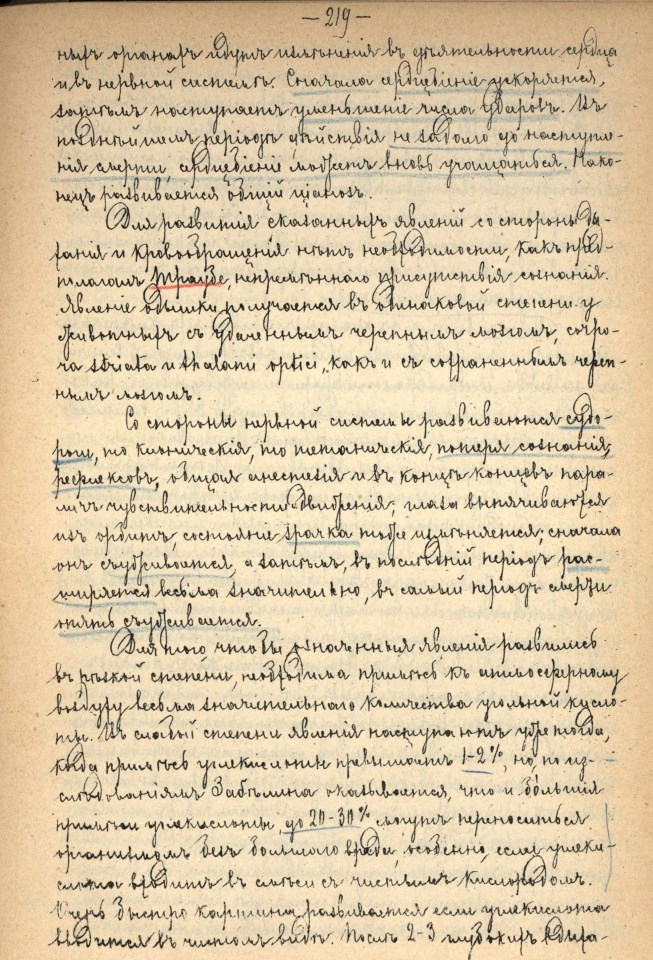 — 219 —
ныхъ органахъ идутъ измѣненія въ дѣятельности сердца
и въ нервной системѣ. Сначала сердцебіеніе ускоряется,
затѣмъ наступаетъ уменьшеніе числа ударовъ. Въ
позднѣйшемъ періодѣ дѣйствія не задолго до наступле-
нія смерти, сердцебіеніе можетъ вновь учащаться. Нако-
нецъ развивается общій ціанозъ.
Для развитія сказанныхъ явленій со стороны ды-
ханія и кровообращенія нѣтъ необходимости, какъ пред-
полагалъ Траубе, непремѣннаго присутствія сознанія.
Явленіе одышки получается въ одинаковой степени у
животныхъ съ удаченнымъ черепнымъ мозгомъ, corpo-
ra striata и thalami optici, какъ и съ сохраненнымъ череп-
нымъ мозгомъ.
Со стороны нервной системы развиваются судо-
роги, то клоническія, то тетаническія, потеря сознанія,
рефлексовъ, общая анестезія и въ концѣ концовъ пара-
личъ чувствительности и движенія; глаза выпячиваются
изъ орбитъ, состояніе зрачка тоже измѣняется; сначала
онъ съуживается, а затѣмъ, въ послѣдній періодъ рас-
ширяется весьма значительно, въ самый періодъ смерти
опять съуживается.
Для того, чтобы означенныя явленія развились
въ рѣзкой степени, необходима примѣсь къ атмосферному
воздуху весьма значительнаго количества угольной кисло-
ты. Въ слабой степени явленія наступаютъ уже тогда,
когда примѣсь углекислоты превышаетъ 1-2%, но, по из-
слѣдованіямъ Забѣлина оказывается, что и бо́льшія
примѣси углекислоты, до 20-30% могутъ переноситься
организмомъ безъ большаго вреда, особенно, если углеки-
слота входитъ въ смѣси съ чистымъ кислородомъ.
Очень быстро картина развивается если углекислота
вводится въ чистомъ видѣ. Послѣ 2-3 глубокихъ вдыха-